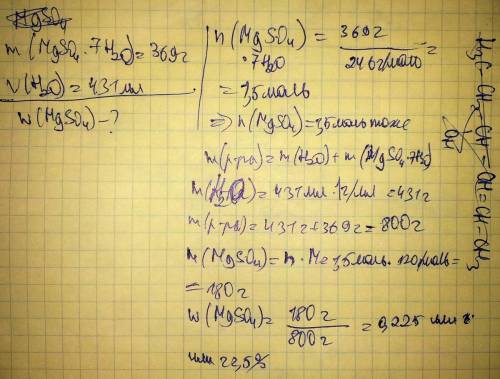 m (MgSO₄ · 7H₂O) = 369г
V(H₂O) = 431 мл
w(MgSO₄) - ?
n (MgSO₄ · 7H₂O) = 369г / 246г/моль =
= 1,5 моль
⇒ n (MgSO₄) = 1,5 моль тоже
m (р-ра) = m (H₂O) + m (MgSO₄·7H₂O)
m(H₂O) = 431 мл · 1г/мл = 431 г
m (р-ра) = 431г + 369г = 800г
m (MgSO₄) = n · M = 1,5 моль · 120г/моль =
= 180 г
w (MgSO₄) = 180 г / 800 г = 0,225 или
или 22,5%
OH